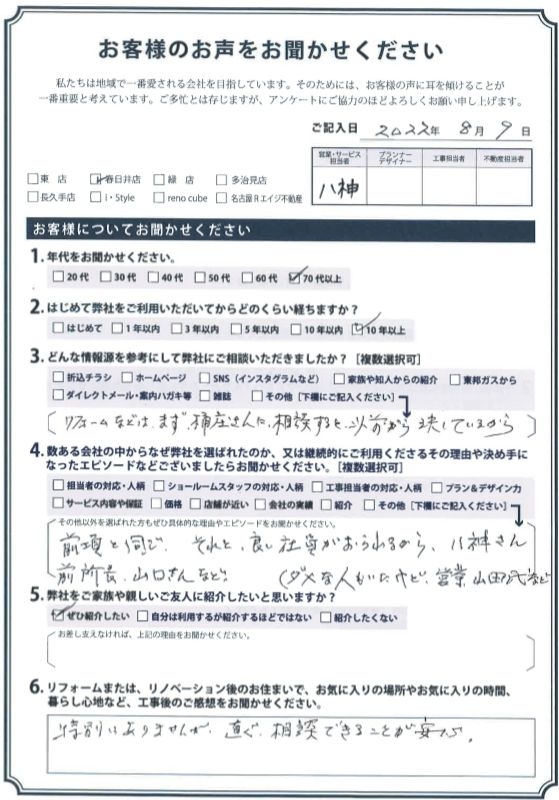 お客様のお声をお聞かせください
私たちは地域で一番愛される会社を目指しています。そのためには、お客様の声に耳を傾けることが
一番重要と考えています。ご多忙とは存じますが、アンケートにご協力のほどよろしくお願い申し上げます。
ご記入日 2022年 8月 9日
営業・サービス担当者 プランナーデザイナー 工事担当者 不動産担当者
八神
□東 店 ☑春日井店 □緑 店 □多治見店
□長久手店 □i・Style □reno cube □名古屋Rエイジ不動産
お客様についてお聞かせください
1. 年代をお聞かせください。
□20代 □30代 □40代 □50代 □60代 ☑70代以上
2. はじめて弊社をご利用いただいてからどのくらい経ちますか?
□はじめて □1年以内 □3年以内 □5年以内 □10年以内 ☑10年以上
3. どんな情報源を参考にして弊社にご相談いただきましたか?[複数選択可]
□折込チラシ □ホームページ □SNS(インスタグラムなど) □家族や知人からの紹介 □東邦ガスから
□ダイレクトメール・案内ハガキ等 □雑誌 □その他[下欄にご記入ください]
(リフォームなどは、まず、桶庄さんに、相談すると、以前から決しているから)
4. 数ある会社の中からなぜ弊社を選ばれたのか、又は継続的にご利用くださるその理由や決め手に
なったエピソードなどございましたらお聞かせください。[複数選択可]
□担当者の対応・人柄 □ショールームスタッフの対応・人柄 □工事担当者の対応・人柄 □プラン&デザイン力
□サービス内容や保証 □価格 □店舗が近い □会社の実績 □紹介 □その他[下欄にご記入ください]
その他以外を選ばれた方もぜひ具体的な理由やエピソードをお聞かせください。
前項と同じ、それと、良い社員がおられるから、八神さん
前所長、山口さんなど。 (ダメな人もいたけど、営業、山田氏など
5. 弊社をご家族や親しいご友人に紹介したいと思いますか?
☑ぜひ紹介したい □自分は利用するが紹介するほどではない □紹介したくない
お差し支えなければ、上記の理由をお聞かせください。
6. リフォームまたは、リノベーション後のお住まいで、お気に入りの場所やお気に入りの時間、
暮らし心地など、工事後のご感想をお聞かせください。
特別にありませんが、直ぐ、相談できることが安心。